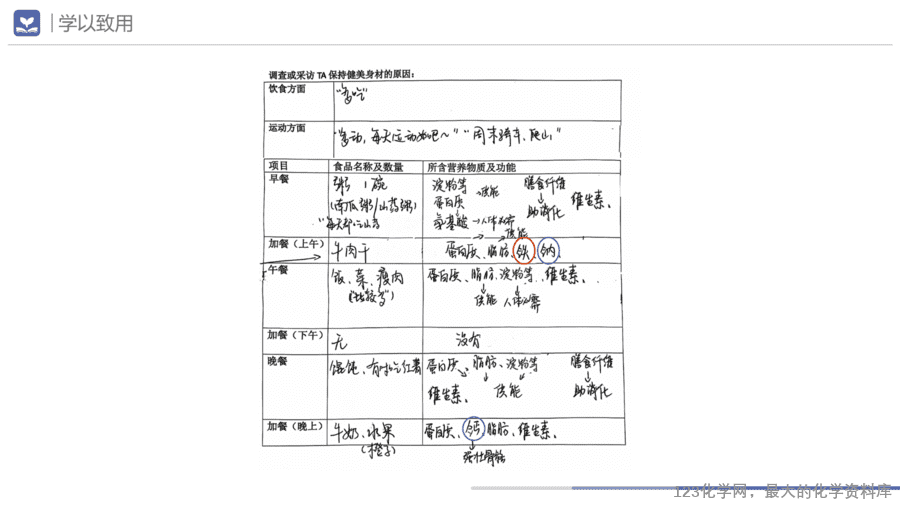 学以致用
调查或采访 TA 保持健美身材的原因：
饮食方面
"多吃"
运动方面
"多动，每天运动" "周末骑车、爬山"
项目 食品名称及数量 所含营养物质及功能
早餐 粥 1碗 淀粉等 → 供能 膳食纤维
(南瓜粥/山药粥) 蛋白质 ↓ 维生素、
氨基酸 助消化
供能
加餐（上午） 牛肉干 蛋白质、脂肪、铁、钠、
午餐 饭、菜、瘦肉 蛋白质、脂肪、淀粉等、维生素、
("比较多") 供能
加餐（下午） 无 没有
晚餐 馄饨、有时吃红薯 蛋白质、脂肪、淀粉等 膳食纤维
维生素、 供能 助消化
加餐（晚上） 牛奶、水果 蛋白质、钙、脂肪、维生素、
(橙子) 强壮骨骼
123化学网，最大的化学资料库